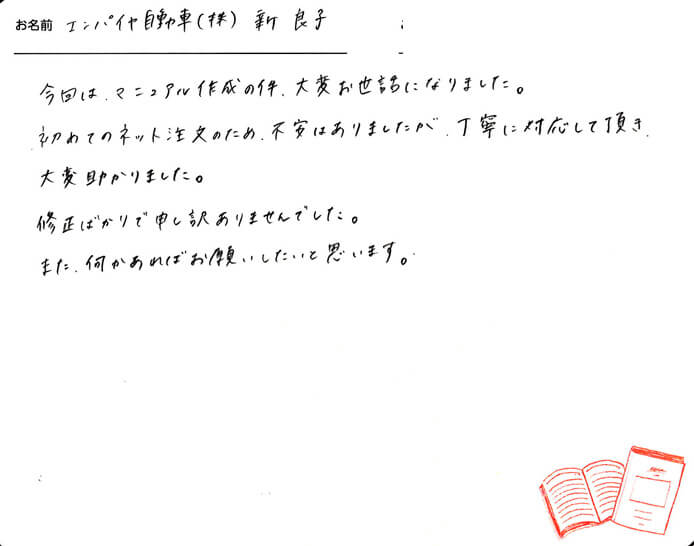 お名前 エンパイヤ自動車(株) 新 良子
今回は、マニュアル作成の件、大変お世話になりました。
初めてのネット注文のため、不安はありましたが、丁寧に対応して頂き、
大変助かりました。
修正ばかりで申し訳ありませんでした。
また、何かあればお願いしたいと思います。